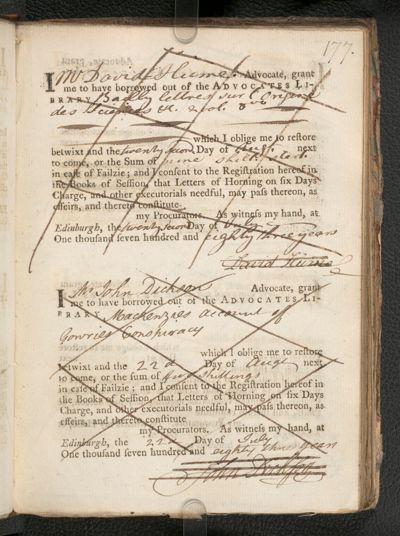 177.
I Mr David Hume Advocate, grant
me to have borrowed out of the ADVOCATES LI-
BRARY Bailly lettres sur l'Origine
des Sciences &c. 2 vol. 8vo
which I oblige me to restore
betwixt and the twenty second Day of Augt. next
to come, or the Sum of nine shill. sterl.
in case of Failzie; and I consent to the Registration hereof in
the Books of Session, that Letters of Horning on six Days
Charge, and other executorials needful, may pass thereon, as
effeirs, and thereto constitute
my Procurators. As witness my hand, at
Edinburgh, the twenty second Day of July
One thousand seven hundred and eighty three years
David Hume
I Mr John Dickson Advocate, grant
me to have borrowed out of the ADVOCATES LI-
BRARY Mackenzies account of
Gowries Conspiracy
which I oblige me to restore
betwixt and the 22d Day of Augt. next
to come, or the sum of shillings
in case of Failzie; and I consent to the Registration hereof in
the Books of Session, that Letters of Horning on six Days
Charge, and other executorials needful, may pass thereon, as
effeirs, and thereto constitute
my Procurators. As witness my hand, at
Edinburgh, the 22d Day of July
One thousand seven hundred and eighty three years
John Dickson